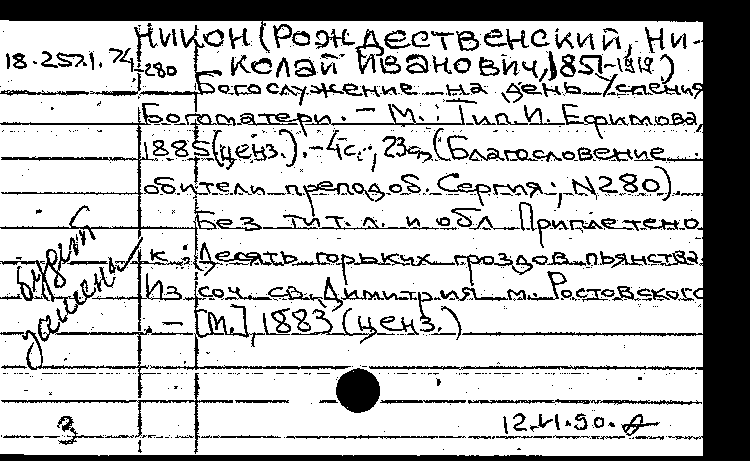 НИКОН (РОЖДЕСТВЕНСКИЙ, НИ-
18.257.1.74 280 КОЛАЙ ИВАНОВИЧ, 1851-1919)
Богослужение на день Успения
Богоматери. - М.: Тип. И. Ефимова,
1885 (ценз.). - 4с.; 23см, (Благословение
обители преподоб. Сергия; N280).
Без тит. л. и обл Приплетено
к: Десять горьких гроздов пьянства.
Из соч. св. Димитрия м. Ростовского
. - [М.], 1883 (ценз.)
будет
замена
3
12.VI.90.